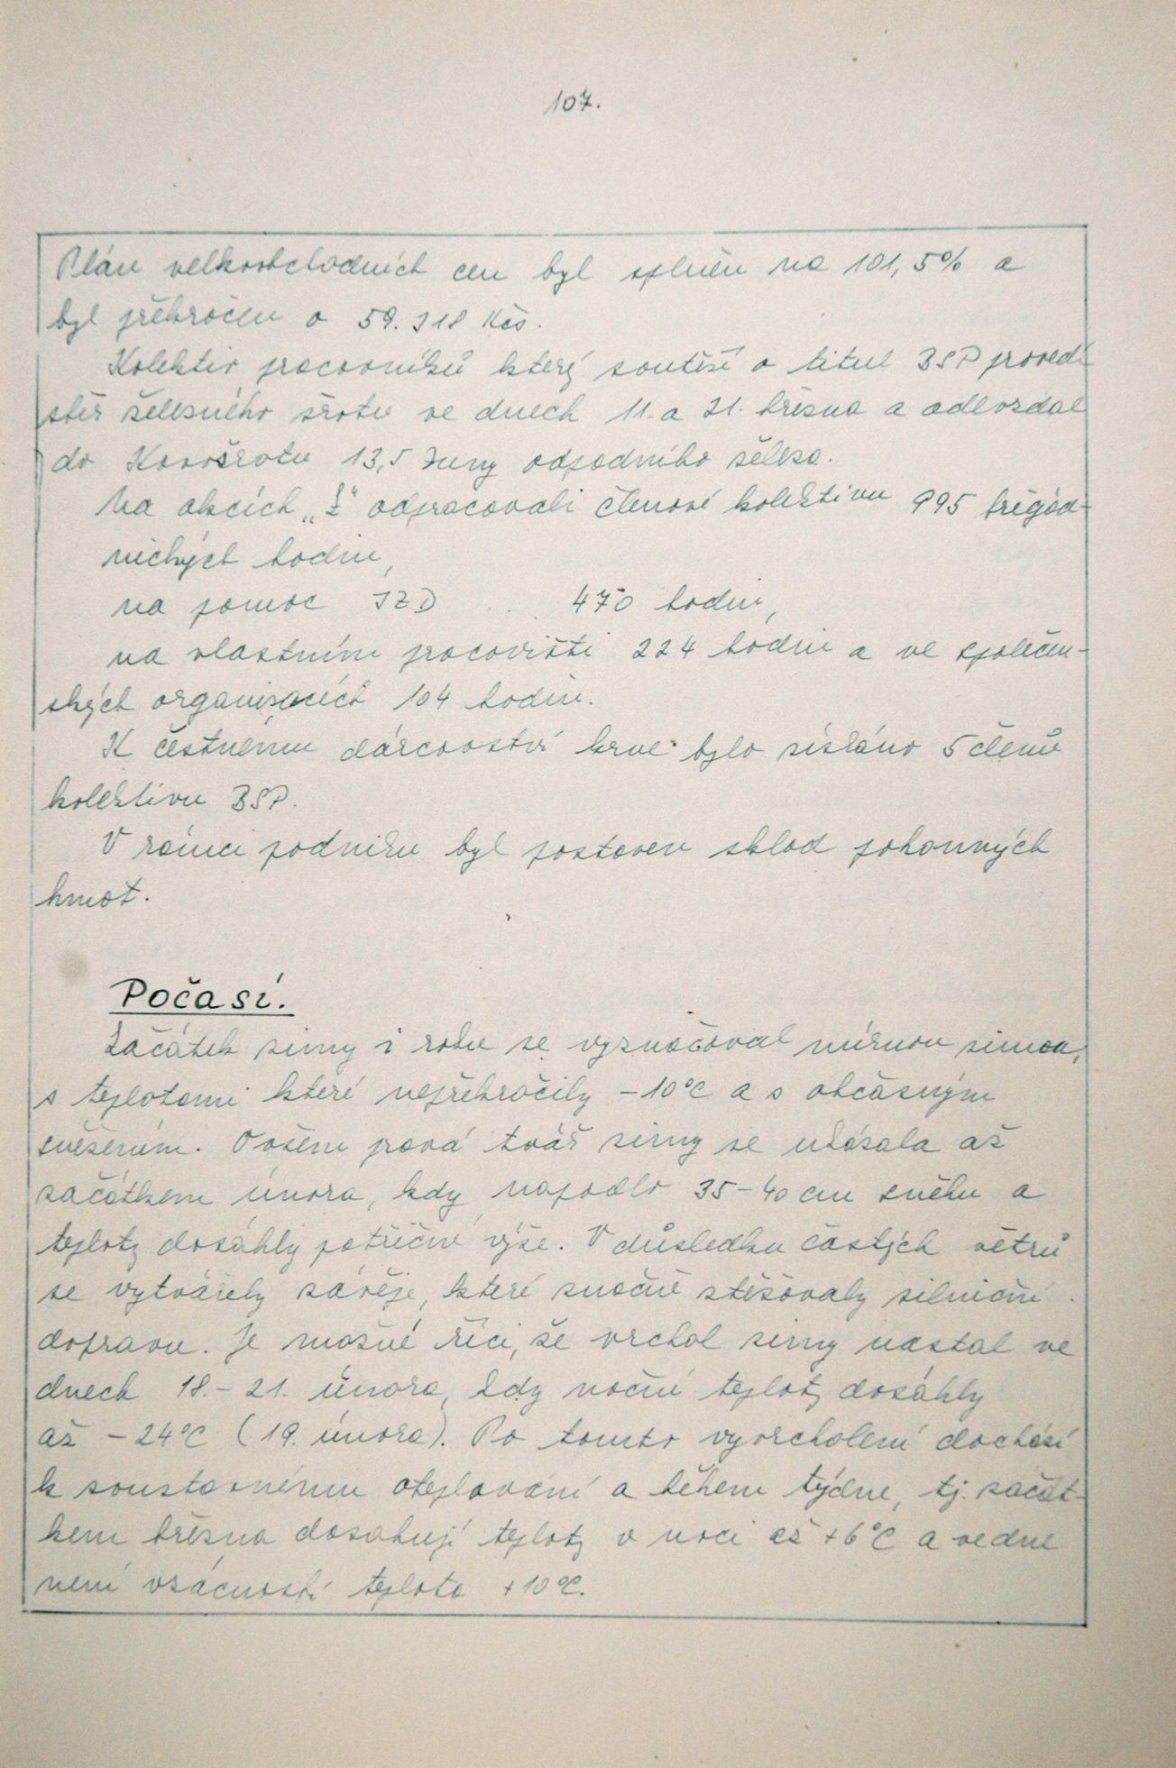 107.
Plán velkoobchodních cen byl splněn na 101,5% a
byl překročen o 59.318 Kčs.
Kolektiv pracovníků který soutěží o titul BSP provedl
sběr železného šrotu ve dnech 11. a 21. března a odevzdal
do Kovošrotu 13,5 tuny odpadního železa.
Na akcích „Z" odpracovali členové kolektivu 995 brigád-
nických hodin,
na pomoc JZD 470 hodin,
na vlastním pracovišti 224 hodin a ve společen-
ských organizacích 104 hodin.
K čestnému dárcovství krve bylo získáno 5 členů
kolektivu BSP.
V rámci podniku byl postaven sklad pohonných
hmot.
Počasí.
Začátek zimy i roku se vyznačoval mírnou zimou,
s teplotami které nepřekročily -10°C a s občasným
sněžením. Ovšem pravá tvář zimy se ukázala až
začátkem února, kdy napadlo 35-40 cm sněhu a
teploty dosáhly patřičné výše. V důsledku častých větrů
se vytvářely závěje, které značně stěžovaly silniční
dopravu. Je možné říci, že vrchol zimy nastal ve
dnech 18.- 21. února, kdy noční teploty dosáhly
až -24°C (19. února). Po tomto vyvrcholení dochází
k soustavnému oteplování a během týdne, tj. začát-
kem března dosahují teploty v noci až +6°C a ve dne
není vzácností teplota +10°C.